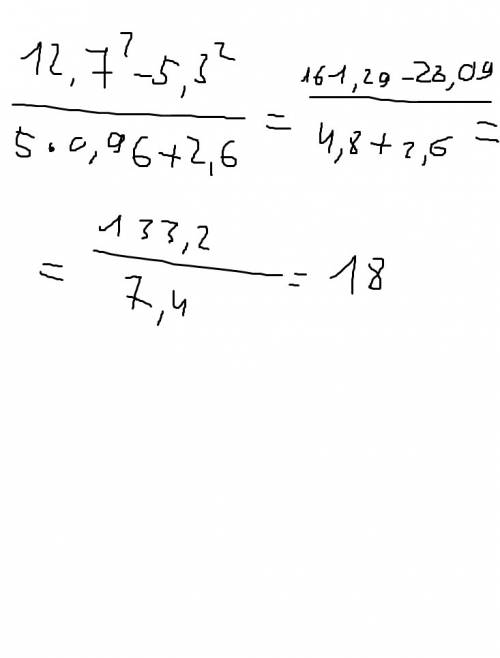 12,7² - 5,3² / 5 · 0,96 + 2,6 = 161,29 - 28,09 / 4,8 + 2,6 =
= 133,2 / 7,4 = 18